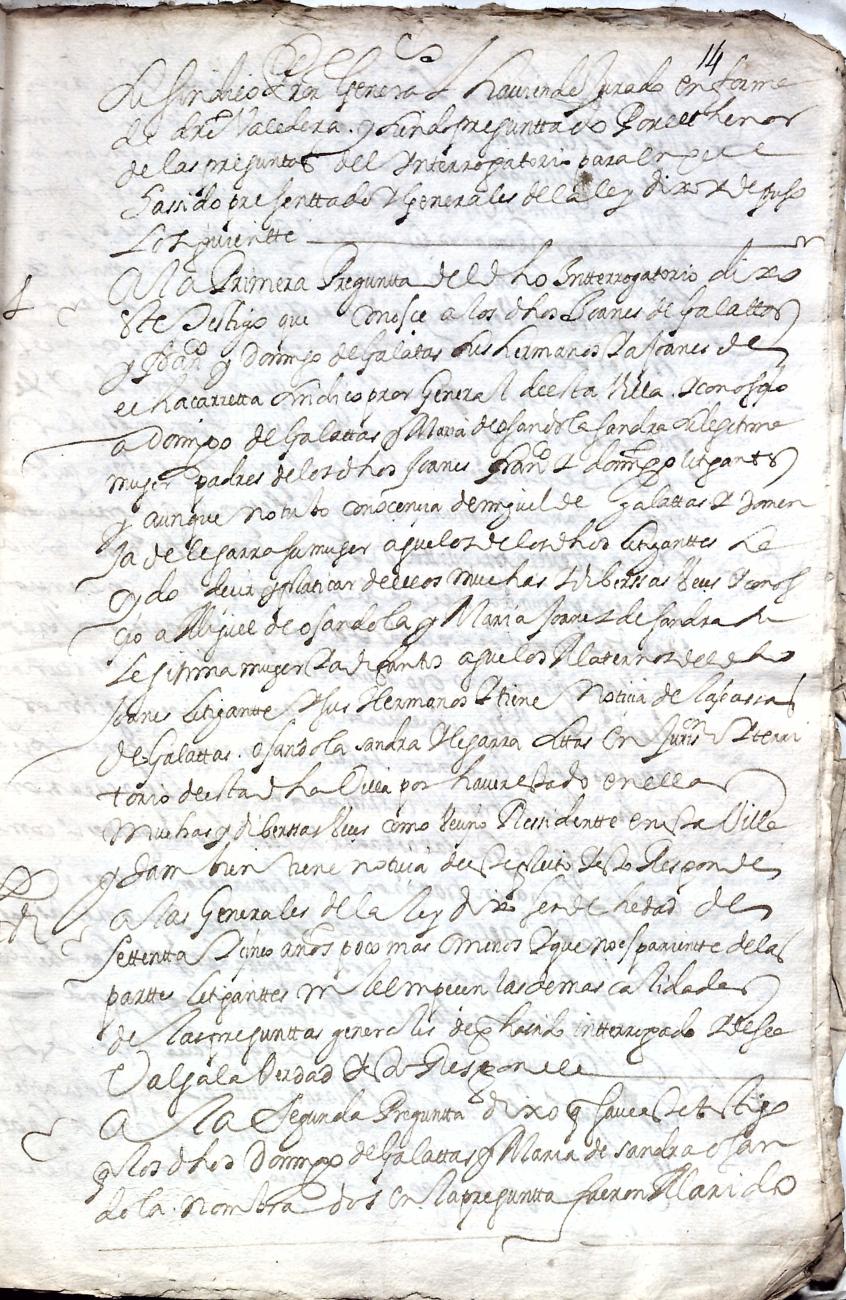 14
Le sindico Pror General haviendo Jurado en forma
de dro Valedera y siendo preguntado Por el thenor
de las preguntas del Ynterrogatorio para en que
ha ssido presenttado Y Generales de la ley dixo y depuso
Lo siguiente
1 A la Primera Pregunta del dho Intterrogatorio dixo
este Testigo que Conosce a los dhos Joanes de Galattas
y Franco y Domingo de Galatas sus hermanos Ya Joanes de
echacarretta sindico pror General de esta Villa Y conoscio
a Domingo de Galattas y Maria de osandola sandra su legitima
muger padres de los dhos Joanes Franco Y domingo litigantes
y aunque no tubo conocencia de miguel de Galattas Y Domen
ja de legarra su muger aguelos de los dhos litiganttes Le
oydo decir y platicar de ellos muchas Y diberssas veces Y conos
cio a Miguel de osandola y Maria de sandra su
Legitima muger Ya difuntos aguelos Maternos del dho
Joanes litigante Y sus Hermanos Y tiene noticia de las casas
de Galattas osandola sandra Y legarra sittas En Jurison Y terri
torio de esta dha Villa por haver estado en ellas
Muchas y diberssas veces como vecino Ressidentte en esta Villa
y tambien tiene noticia de este pleito Y esto Responde
A las Generales de la ley dixo ser de hedad de
settentta Y cinco años poco mas o menos Y que no es pariente de las
parttes litiganttes ni le empecen las demas calidades
de las preguntas generales de que ha sido intterrogado Y desea
Valga la Verdad Y esto Responde
A la Segunda Pregunta dixo q save este testigo
q los dhos Domingo de Galattas y Maria de sandra osan
dola nombrados en la pregunta fueron Marido